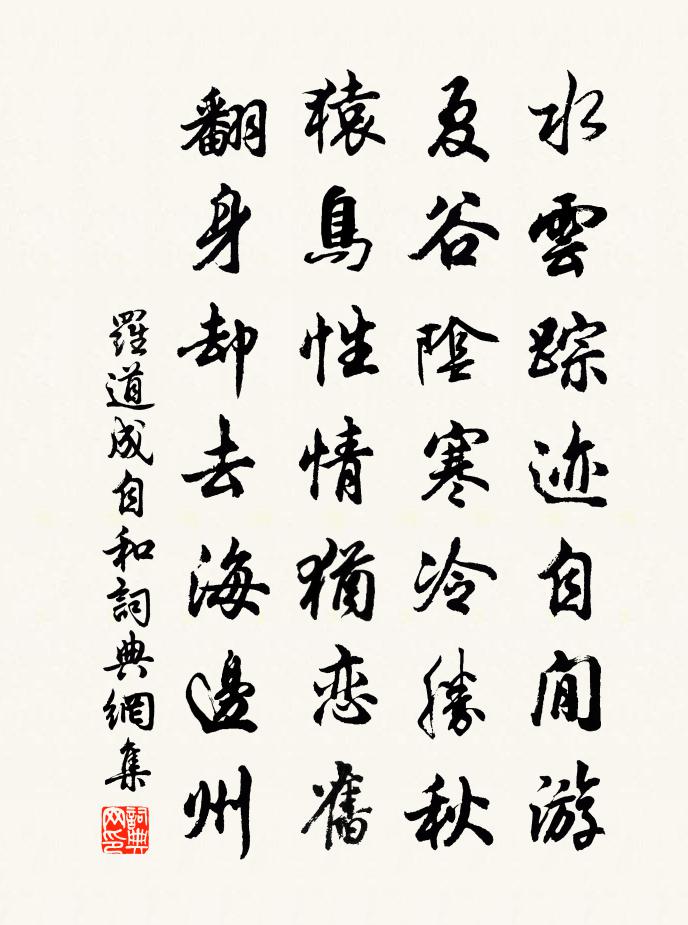 水雲踪迹自閒游
夏谷陰寒冷勝秋
猿鳥性情猶恋舊
翻身却去海邊州
羅道成自和詞典網集
詞典网印